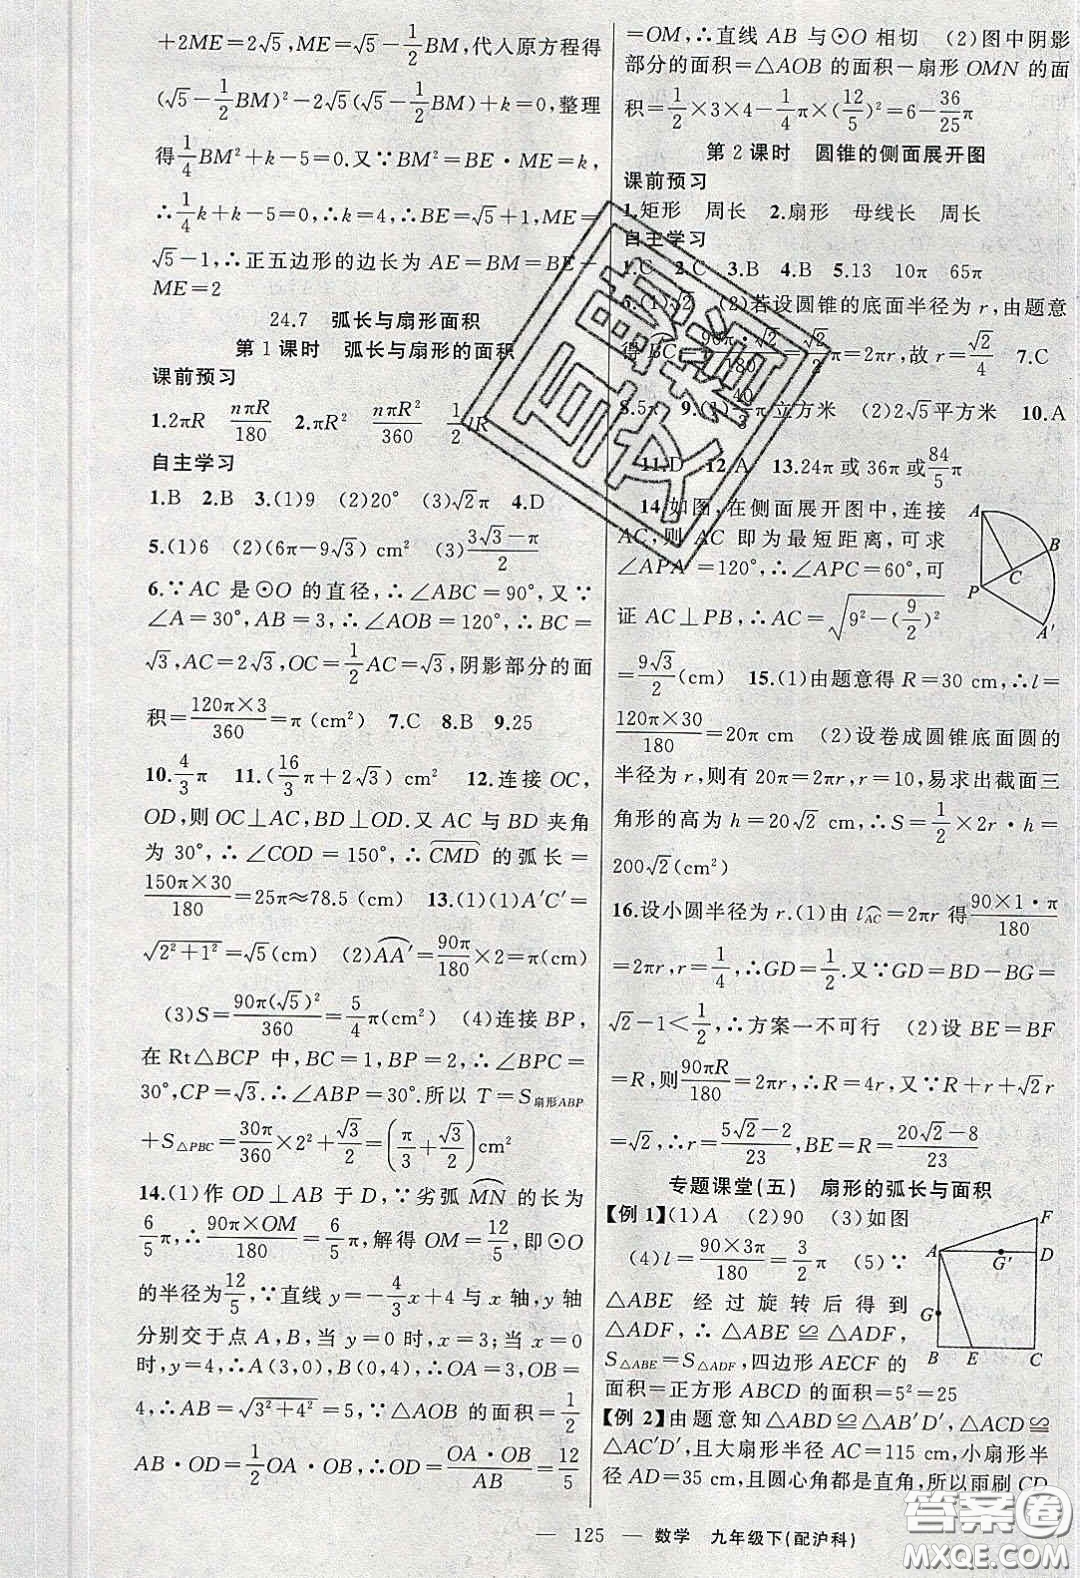 +2ME=2√5,ME=√5-1/2BM,代入原方程得
(√5-1/2BM)²-2√5(√5-1/2BM)+k=0,整理
得1/4BM²+k-5=0.又∵BM²=BE·ME=k,
∴1/4k+k-5=0,∴k=4,∴BE=√5+1,ME=
√5-1,∴正五边形的边长为AE=BM=BE-
ME=2
24.7 弧长与扇形面积
第1课时 弧长与扇形的面积
课前预习
1.2πR nπR/180 2.πR² nπR²/360 1/2lR
自主学习
1.B 2.B 3.(1)9 (2)20° (3)√2π 4.D
5.(1)6 (2)(6π-9√3)cm² (3)(3√3-π)/2
6.∵AC是⊙O的直径,∴∠ABC=90°,又∵
∠A=30°,AB=3,∴∠AOB=120°,∴BC=
√3,AC=2√3,OC=1/2AC=√3,阴影部分的面
积=120π×3/360=π(cm²) 7.C 8.B 9.25
10.4/3π 11.(16/3π+2√3)cm² 12.连接OC,
OD,则OC⊥AC,BD⊥OD.又AC与BD夹角
为30°,∴∠COD=150°,∴⌒CMD的弧长=
150π×30/180=25π≈78.5(cm) 13.(1)(1)A′C′=
√(2²+1²)=√5(cm) (2)⌒AA′=90π/180×2=π(cm)
(3)S=90π(√5)²/360=5/4π(cm²) (4)连接BP,
在Rt△BCP中,BC=1,BP=2,∴∠BPC=
30°,CP=√3.∴∠ABP=30°.所以T=S扇形ABP
+S△PBC=30π/360×2²+√3/2=(π/3+√3/2)cm²
14.(1)作OD⊥AB于D,∵劣弧⌒MN的长为
6/5π,∴90π×OM/180=6/5π,解得OM=12/5,即⊙O
的半径为12/5,∵直线y=-4/3x+4与x轴,y轴
分别交于点A,B,当y=0时,x=3;当x=0
时,y=4,∴A(3,0),B(0,4),∴OA=3,OB=
4,∴AB=√(3²+4²)=5,∵△AOB的面积=1/2
AB·OD=1/2OA·OB,∴OD=OA·OB/AB=12/5
=OM,∴直线AB与⊙O相切 (2)图中阴影
部分的面积=△AOB的面积-扇形OMN的面
积=1/2×3×4-1/4π×(12/5)²=6-36/25π
第2课时 圆锥的侧面展开图
课前预习
1.矩形 周长 2.扇形 母线长 周长
自主学习
1.C 2.C 3.B 4.B 5.13 10π 65π
6.(1)√2 (2)若设圆锥的底面半径为r,由题意
得⌒BC=90π·√2/180=√2/2π=2πr,故r=√2/4 7.C
8.5π 9.(1)40/3π立方米 (2)2√5平方米 10.A
11.D 12.A 13.24π或36π或84/5π
14.如图,在侧面展开图中,连接
AC,则AC即为最短距离,可求
∠APA′=120°,∴∠APC=60°,可
证AC⊥PB,∴AC=√(9²-(9/2)²)
=9√3/2(cm) 15.(1)由题意得R=30 cm,∴l=
120π×30/180=20π cm (2)设卷成圆锥底面圆的
半径为r,则有20π=2πr,r=10,易求出截面三
角形的高为h=20√2 cm,∴S=1/2×2r·h=
200√2(cm²)
16.设小圆半径为r.(1)由l⌒AC=2πr得90×1·π/180
=2πr,r=1/4,∴GD=1/2.又∵GD=BD-BG=
√2-1<1/2,∴方案一不可行 (2)设BE=BF
=R,则90πR/180=2πr,∴R=4r,又∵R+r+√2r
=√2,∴r=(5√2-2)/23,BE=R=(20√2-8)/23
专题课堂(五) 扇形的弧长与面积
【例1】(1)A (2)90 (3)如图
(4)l=90×3π/180=3/2π (5)∵
△ABE经过旋转后得到
△ADF,∴△ABE≌△ADF,
S△ABE=S△ADF,四边形AECF的
面积=正方形ABCD的面积=5²=25
【例2】由题意知△ABD≌△AB′D′,△ACD≌
△AC′D′,且大扇形半径AC=115 cm,小扇形半
径AD=35 cm,且圆心角都是直角,所以雨刷CD
A
B
C
P
A′
F
A
D
G′
G
B E C
— 125 — 数学 九年级下(配沪科)
答案圈
MXQE.COM